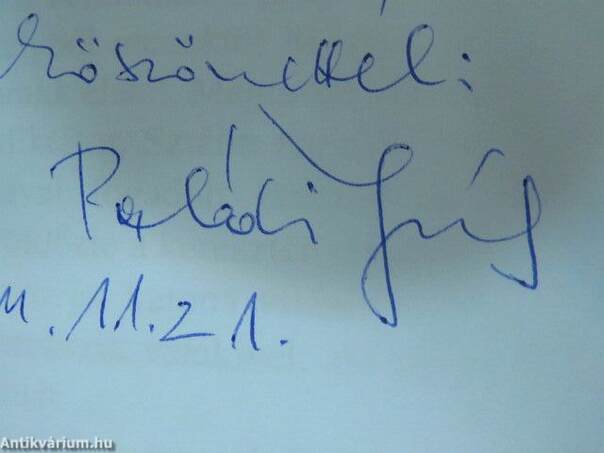 Köszönettel:
Paládi
11.21.
Antikvárium.hu